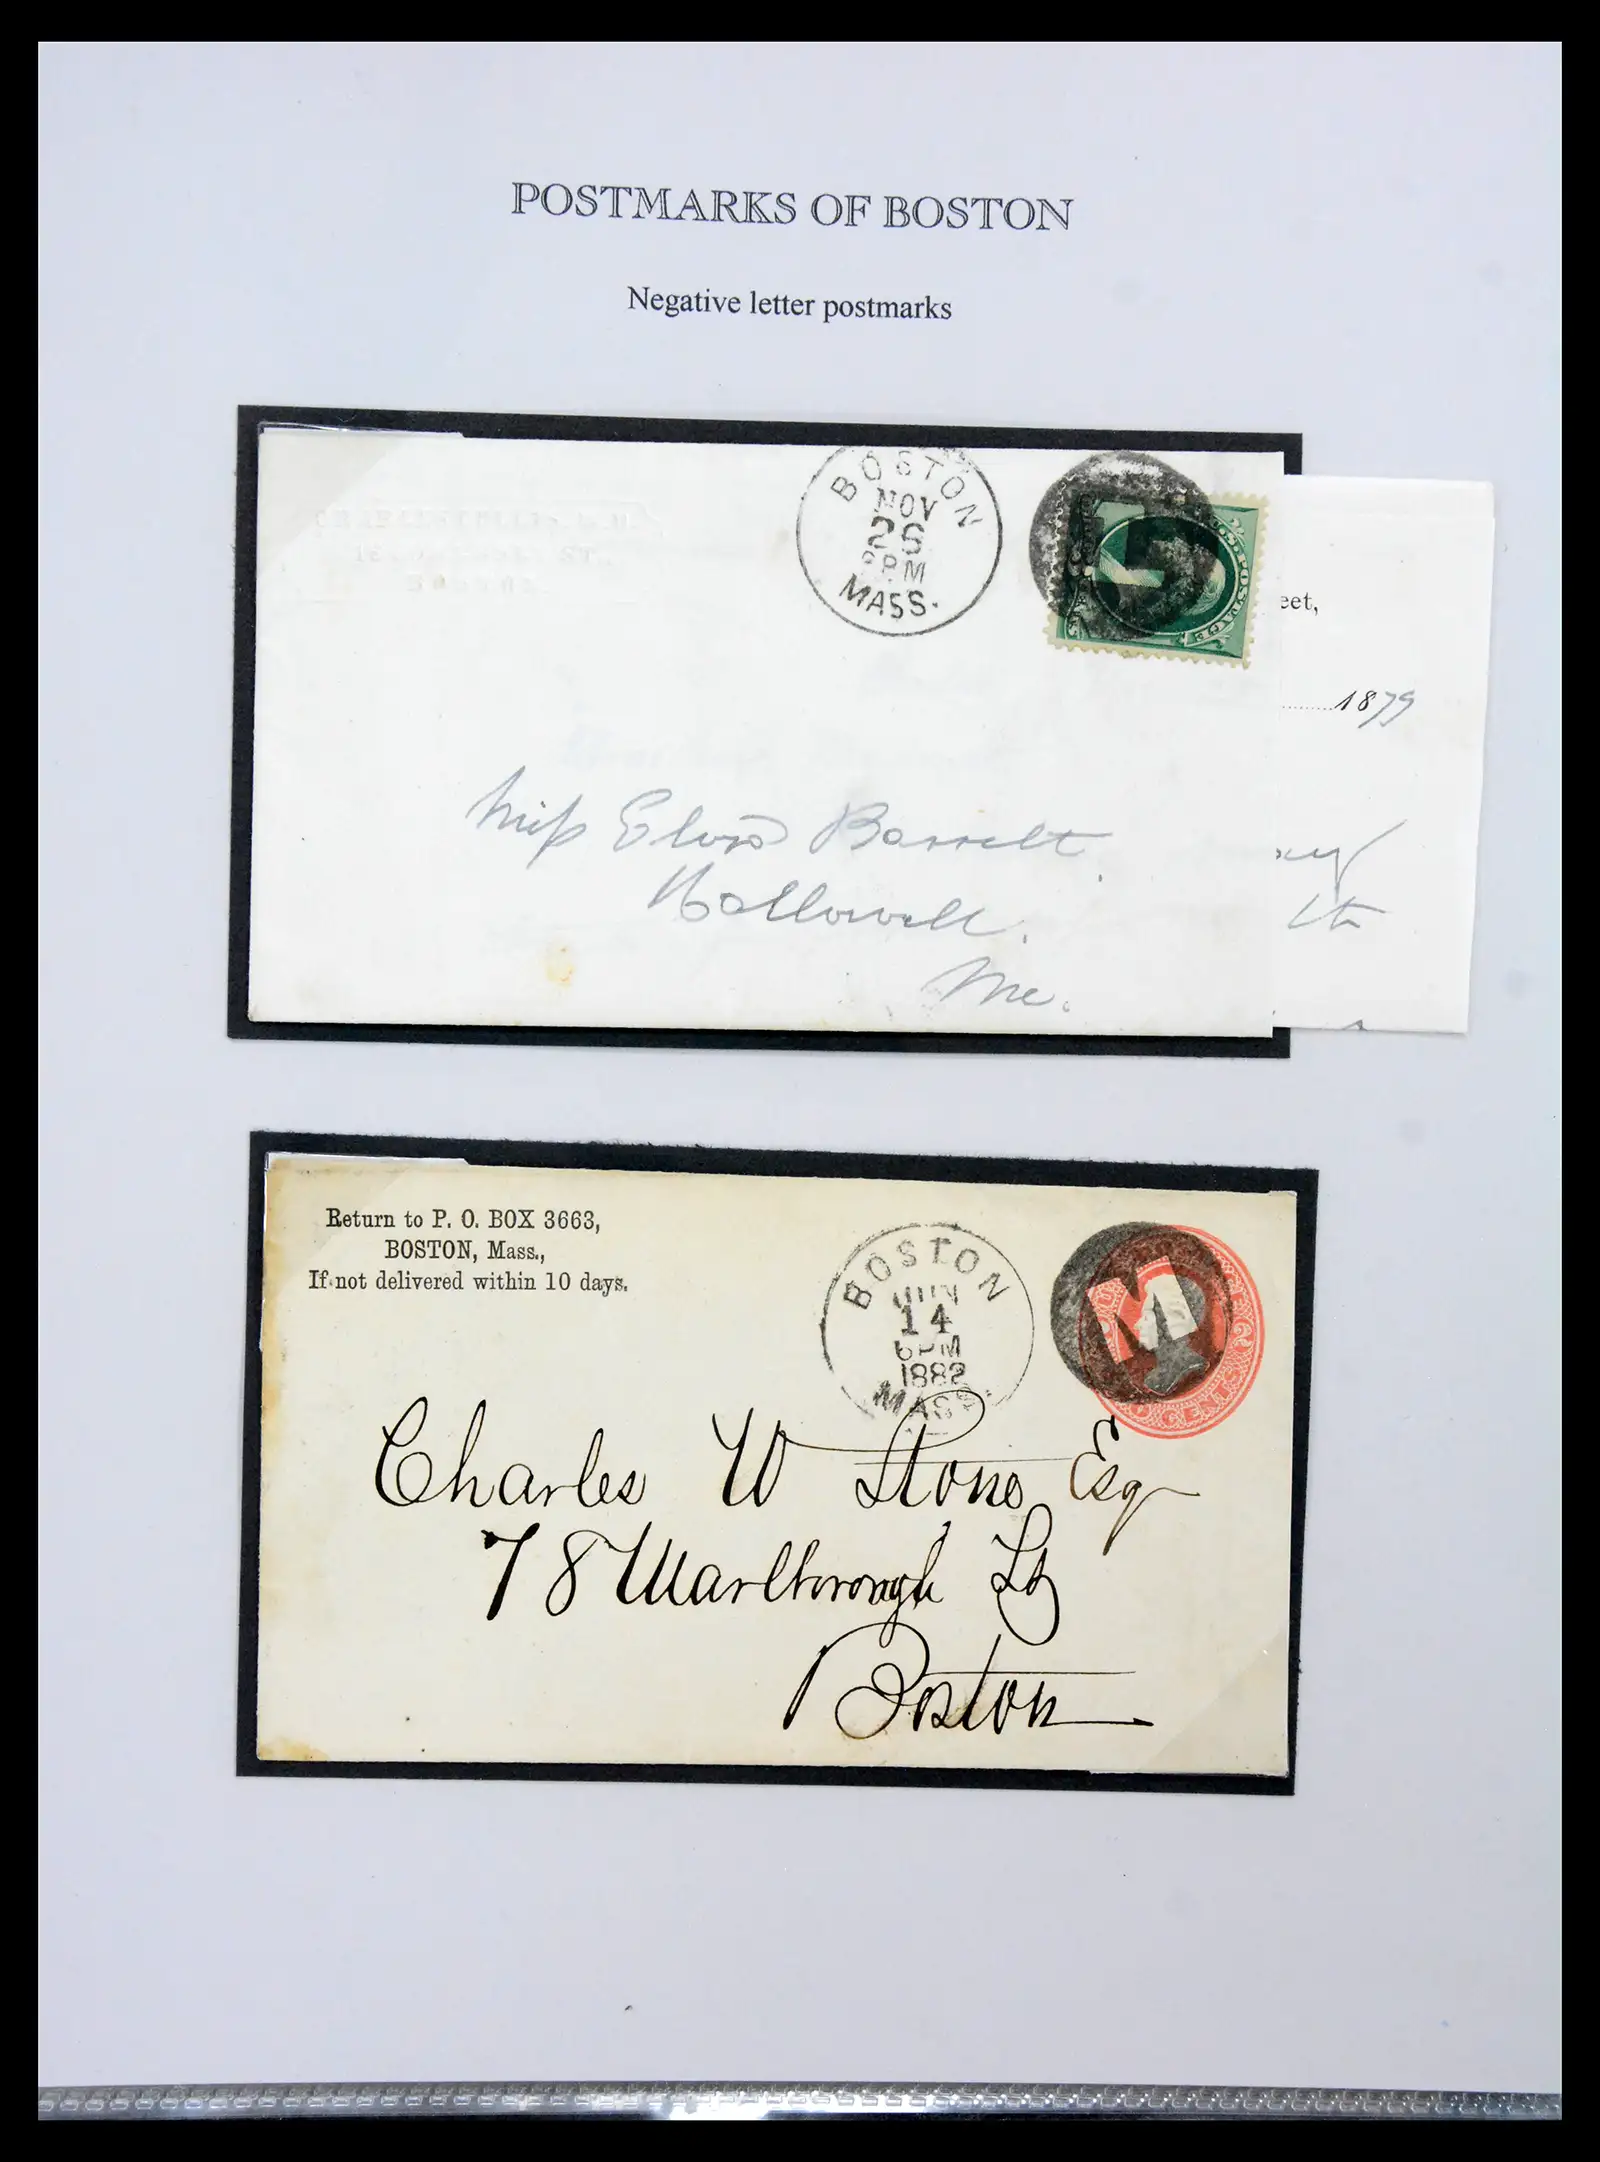 POSTMARKS OF BOSTON
Negative letter postmarks
BOSTON
NOV
26
PM
MASS.
U.S. POSTAGE
eet,
1879
Miss Elvira Barrett
Hallowell.
Me.
Return to P. O. BOX 3663,
BOSTON, Mass.,
If not delivered within 10 days.
BOSTON
JUN
14
6 PM
1882
MASS.
M
CENTS
Charles W Stone Esq
78 Marlborough St
Boston